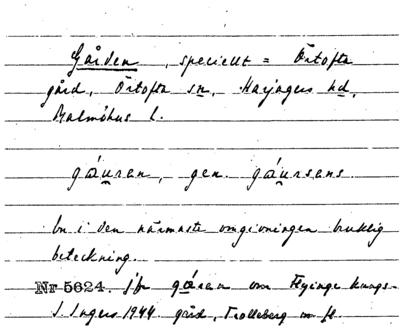 Gården, speciellt = Örtofta
gård, Örtofta sn, Harjagers hd,
Malmöhus l.
gáu̯ran, gen. gáu̯rsens.
en i den närmaste omgivningen bruklig
beteckning.
Nr 5624. jfr gá̱ren om Flyinge kungs-
I. Ingers 1944. gård, Trolleberg m fl.